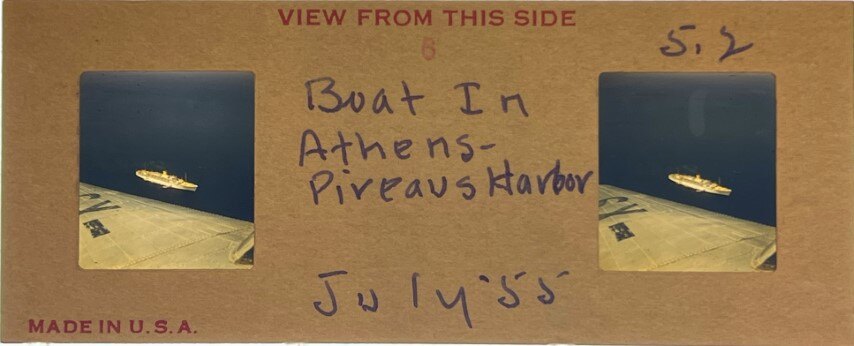 VIEW FROM THIS SIDE
6
5.2
Boat In
Athens-
Pireaus Harbor
July '55
MADE IN U.S.A.